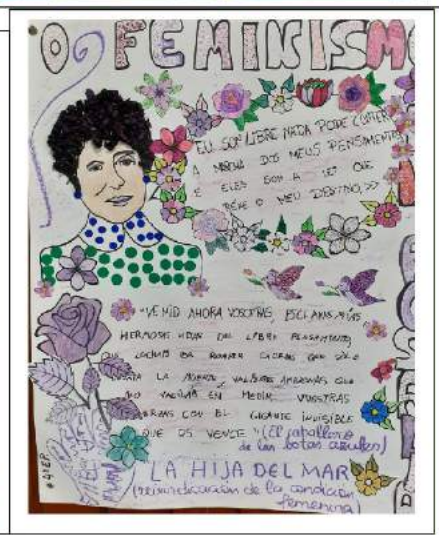 O FEMINISMO
EU SON LIBRE NADA PODE CONTER
A MARCHA DOS MEUS PENSAMENTOS
E ELES SON A LEI QUE
REXE O MEU DESTINO,>>
"VENID AHORA VOSOTRAS, ESCLAVAS MÍAS
HERMOSAS HIJAS DEL LIBRE PENSAMIENTO,
QUE LUCHAIS EN ROMPER QUE SÓLO
LA MUERTE, VALIENTES AMAZONAS QUE
NO VACILÁIS EN MEDIR VUESTRAS
FUERZAS CON EL GIGANTE INVISIBLE
QUE OS VENCE" (El caballero
de las botas azules)
LA HIJA DEL MAR
(reivindicación de la condición
femenina)
4º EP